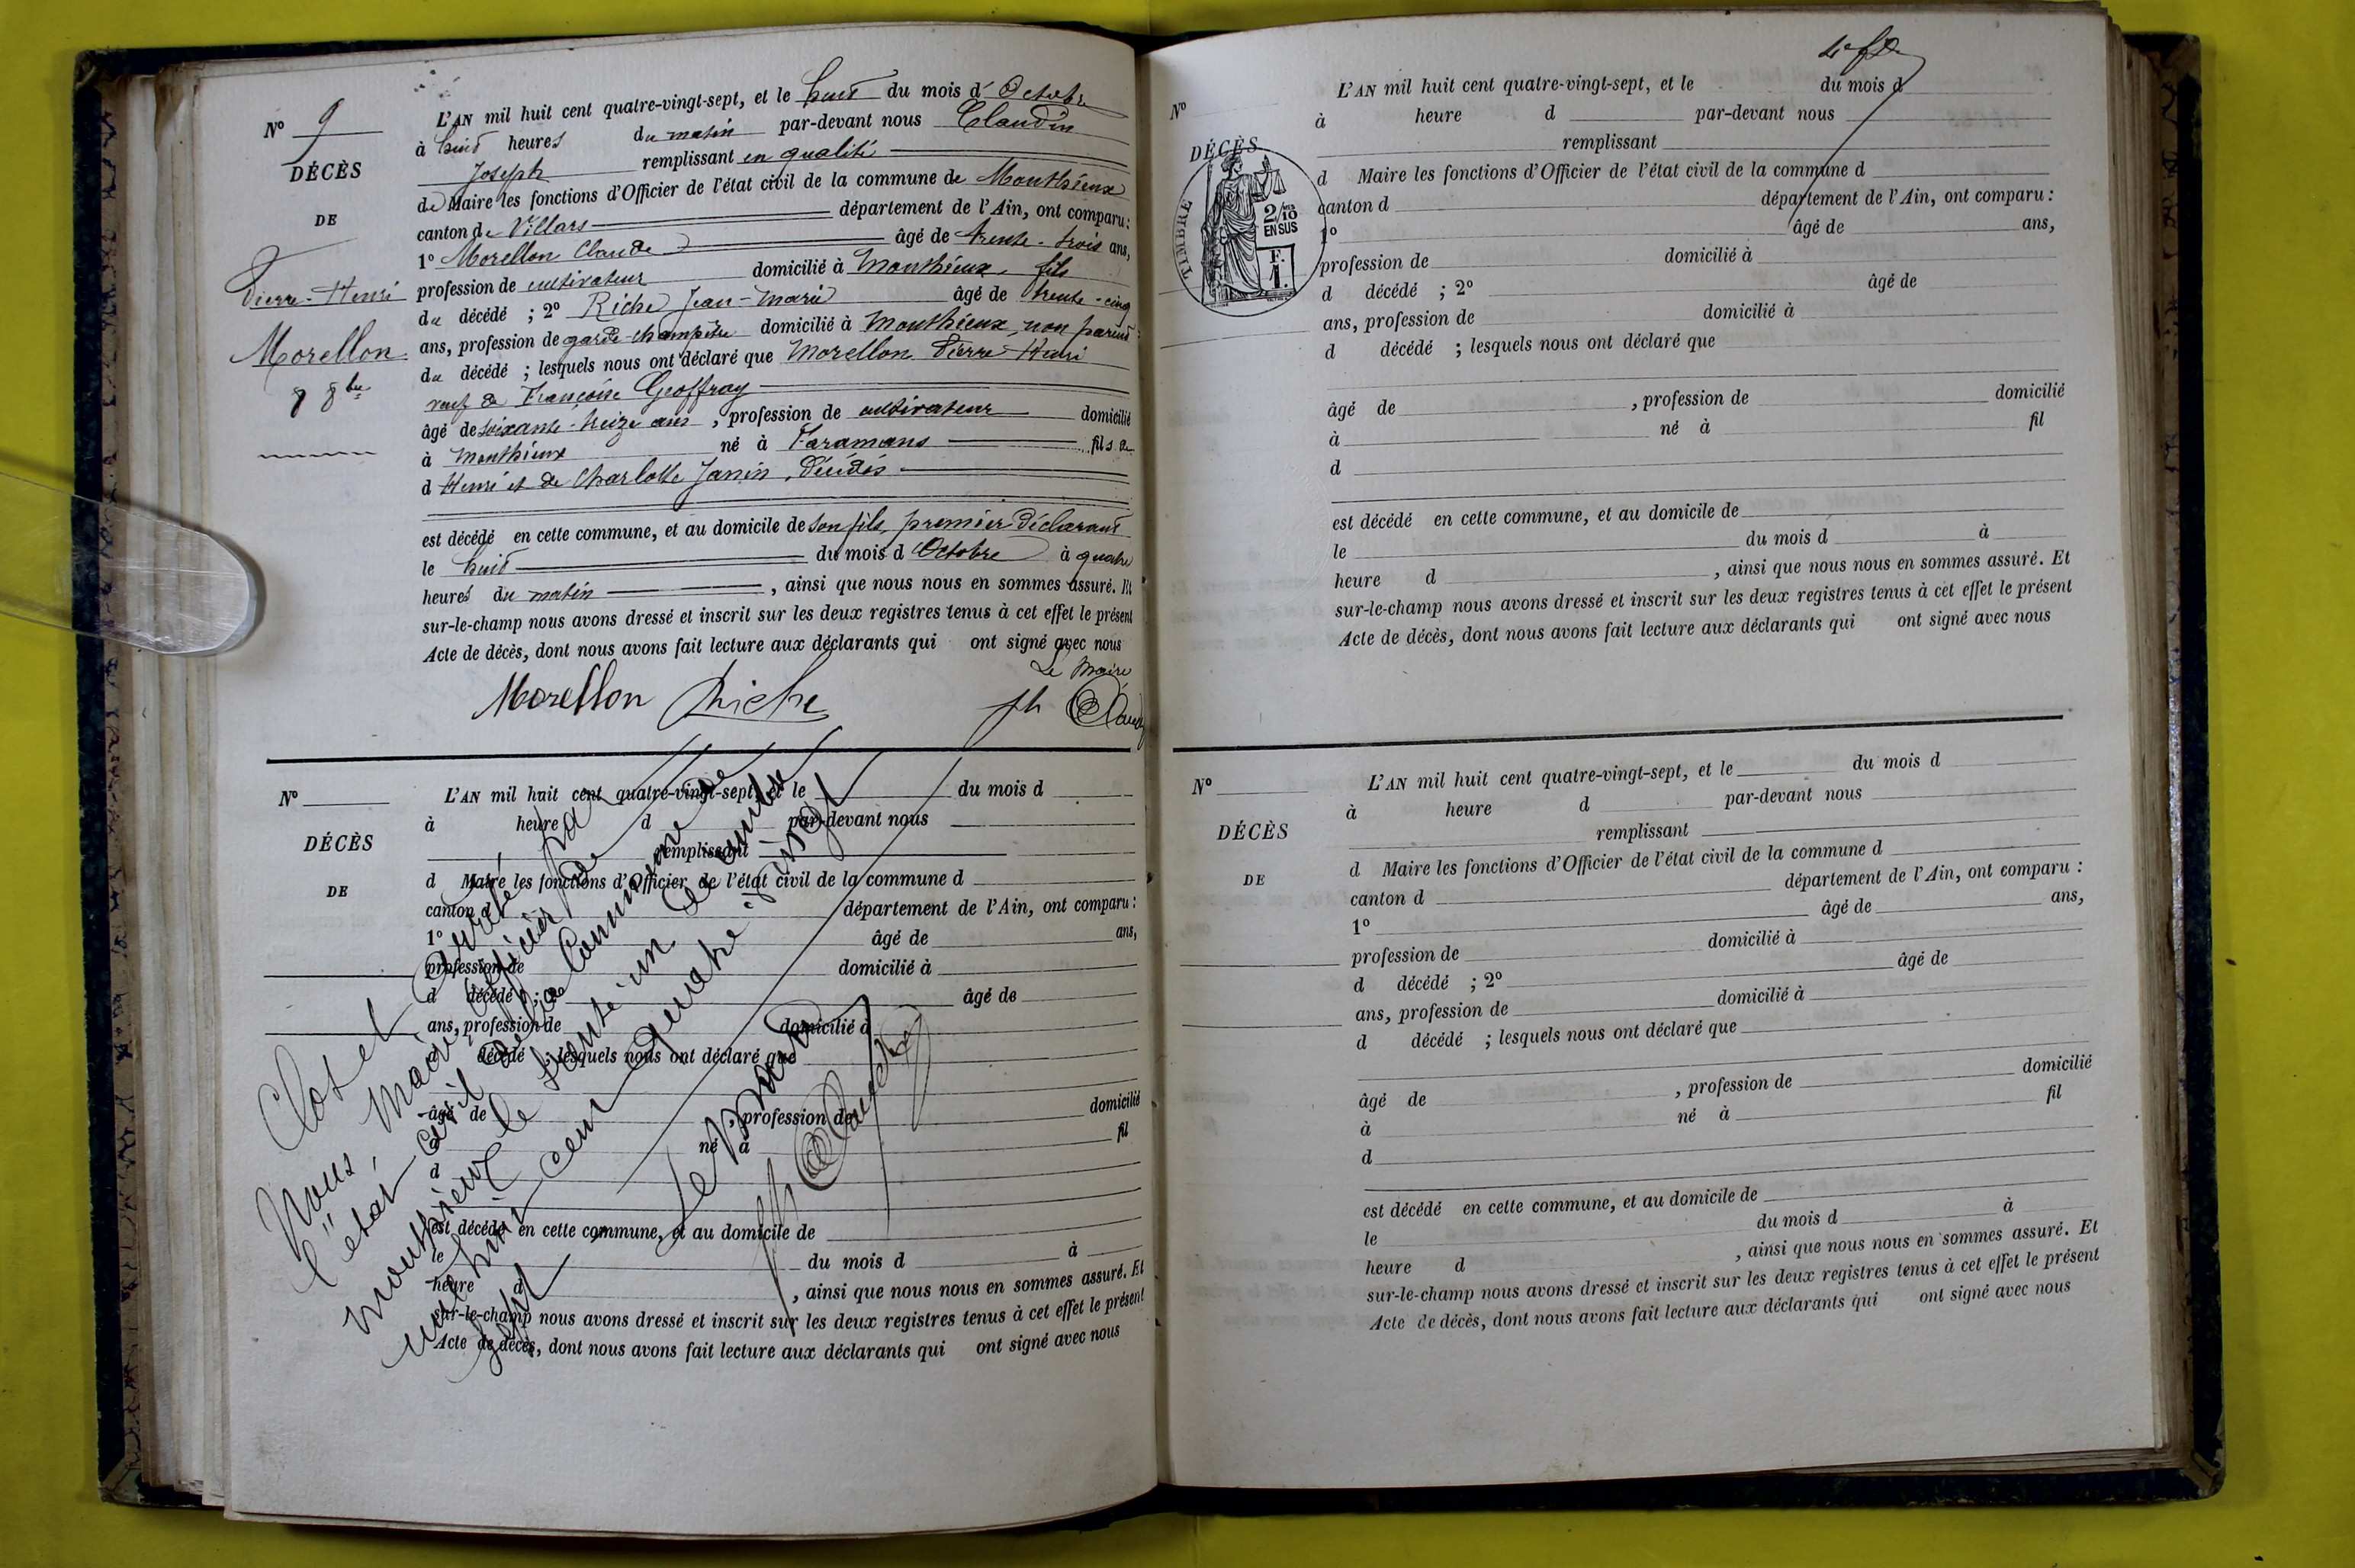 N° 9
DÉCÈS
DE
Pierre-Henri
Morellon
8 8bre
L'AN mil huit cent quatre-vingt-sept, et le huit du mois d'Octobre
à huit heures du matin par-devant nous Claudin
Joseph remplissant en qualité
de Maire les fonctions d'Officier de l'état civil de la commune de Monthieux
canton de Villars département de l'Ain, ont comparu :
1° Morellon Claude âgé de trente-trois ans,
profession de cultivateur domicilié à Monthieux fils
du décédé ; 2° Riche Jean-Marie âgé de trente-cinq
ans, profession de garde-champêtre domicilié à Monthieux non parent
du décédé ; lesquels nous ont déclaré que Morellon Pierre-Henri
veuf de Françoise Geoffray
âgé de soixante-treize ans, profession de cultivateur domicilié
à Monthieux né à Faramans fils de
d Henri et de Charlotte Janin, décédés
est décédé en cette commune, et au domicile de son fils, premier déclarant
le huit du mois d Octobre à quatre
heures du matin, ainsi que nous nous en sommes assuré. Et
sur-le-champ nous avons dressé et inscrit sur les deux registres tenus à cet effet le présent
Acte de décès, dont nous avons fait lecture aux déclarants qui ont signé avec nous
Le Maire
Morellon Riche Jh Claudin
N°
DÉCÈS
DE
L'AN mil huit cent quatre-vingt-sept, et le du mois d
à heure d par-devant nous
remplissant
d Maire les fonctions d'Officier de l'état civil de la commune d
canton d département de l'Ain, ont comparu :
1° âgé de ans,
profession de domicilié à
d décédé ; 2° âgé de
ans, profession de domicilié à
d décédé ; lesquels nous ont déclaré que
âgé de , profession de domicilié
à né à fil
d
est décédé en cette commune, et au domicile de
le du mois d à
heure d , ainsi que nous nous en sommes assuré. Et
sur-le-champ nous avons dressé et inscrit sur les deux registres tenus à cet effet le présent
Acte de décès, dont nous avons fait lecture aux déclarants qui ont signé avec nous
Clos et arrêté par
Nous, Maire, officier de
l'état-civil de la Commune de
Monthieux le trente-un décembre
mil huit cent quatre-vingt
sept
Le Maire
Jh Claudin
N°
DÉCÈS
TIMBRE
2/10
EN SUS
F.
1.
L'AN mil huit cent quatre-vingt-sept, et le du mois d
à heure d par-devant nous
remplissant
d Maire les fonctions d'Officier de l'état civil de la commune d
canton d département de l'Ain, ont comparu :
1° âgé de ans,
profession de domicilié à
d décédé ; 2° âgé de
ans, profession de domicilié à
d décédé ; lesquels nous ont déclaré que
âgé de , profession de domicilié
à né à fil
d
est décédé en cette commune, et au domicile de
le du mois d à
heure d , ainsi que nous nous en sommes assuré. Et
sur-le-champ nous avons dressé et inscrit sur les deux registres tenus à cet effet le présent
Acte de décès, dont nous avons fait lecture aux déclarants qui ont signé avec nous
N°
DÉCÈS
DE
L'AN mil huit cent quatre-vingt-sept, et le du mois d
à heure d par-devant nous
remplissant
d Maire les fonctions d'Officier de l'état civil de la commune d
canton d département de l'Ain, ont comparu :
1° âgé de ans,
profession de domicilié à
d décédé ; 2° âgé de
ans, profession de domicilié à
d décédé ; lesquels nous ont déclaré que
âgé de , profession de domicilié
à né à fil
d
est décédé en cette commune, et au domicile de
le du mois d à
heure d , ainsi que nous nous en sommes assuré. Et
sur-le-champ nous avons dressé et inscrit sur les deux registres tenus à cet effet le présent
Acte de décès, dont nous avons fait lecture aux déclarants qui ont signé avec nous